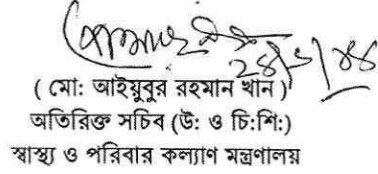 ( মো: আইয়ুবুর রহমান খান )
অতিরিক্ত সচিব (উ: ও চি:শি:)
স্বাস্থ্য ও পরিবার কল্যাণ মন্ত্রণালয়